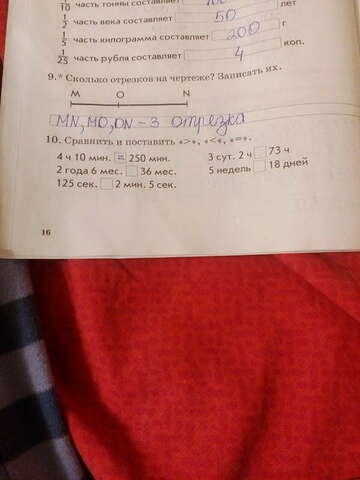 1/10 часть тонны составляет
1/2 часть века составляет 50 лет
1/5 часть килограмма составляет 200 г
1/25 часть рубля составляет 4 коп.
9.* Сколько отрезков на чертеже? Записать их.
M O N
MN, MO, ON - 3 отрезка
10. Сравнить и поставить «>», «<», «=».
4 ч 10 мин. = 250 мин. 3 сут. 2 ч 73 ч
2 года 6 мес. 36 мес. 5 недель 18 дней
125 сек. 2 мин. 5 сек.
16